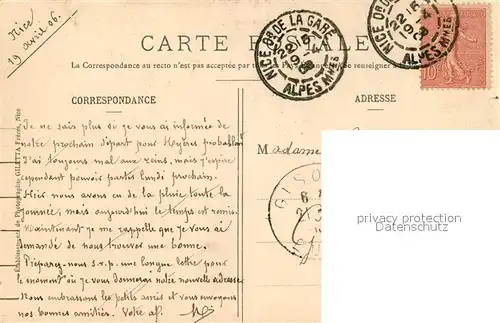 Nice
19 avril 06.
CARTE POSTALE
La Correspondance au recto n'est pas acceptée par se renseigner
CORRESPONDANCE
ADRESSE
NICE Pl. DE LA GARE
ALPES Mmes
NICE
ALPES Mmes
10
Madame
GISO
privacy protection
www.delcampe.net
Établissement de Photographie GILETTA Frères, Nice
Je ne sais plus si je vous ai informée de
notre prochain départ pour Hyères probablt
J'ai toujours mal aux reins, mais j'espère
cependant pouvoir partir lundi prochain.
Hier nous avons eu de la pluie toute la
journée, mais aujourd'hui le temps est remis.
Maintenant je me rappelle que je vous ai
demandé de nous trouver une bonne.
Préparez-nous s.v.p. une longue lettre pour
le moment où je vous donnerai notre nouvelle adresse
Nous embrassons les petits amis et vous envoyons
nos bonnes amitiés. Votre af.